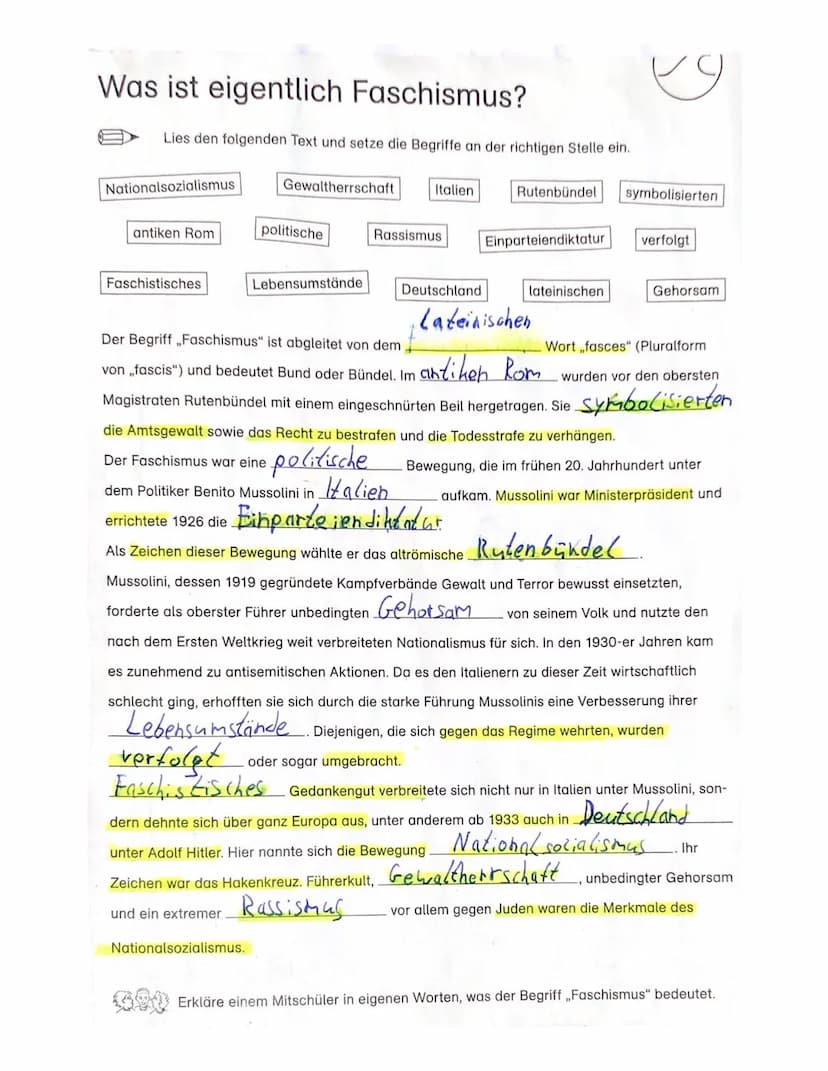 Was ist eigentlich Faschismus?
Lies den folgenden Text und setze die Begriffe an der richtigen Stelle ein.
Nationalsozialismus Gewaltherrschaft Italien Rutenbündel symbolisierten
antiken Rom politische Rassismus Einparteiendiktatur verfolgt
Faschistisches Lebensumstände Deutschland lateinischen Gehorsam
Lateinischen
Der Begriff „Faschismus“ ist abgleitet von dem Wort „fasces“ (Pluralform
von „fascis“) und bedeutet Bund oder Bündel. Im antiken Rom wurden vor den obersten
Magistraten Rutenbündel mit einem eingeschnürten Beil hergetragen. Sie symbolisierten
die Amtsgewalt sowie das Recht zu bestrafen und die Todesstrafe zu verhängen.
Der Faschismus war eine politische Bewegung, die im frühen 20. Jahrhundert unter
dem Politiker Benito Mussolini in Italien aufkam. Mussolini war Ministerpräsident und
errichtete 1926 die Einparteiendiktatur
Als Zeichen dieser Bewegung wählte er das altrömische Rutenbündel.
Mussolini, dessen 1919 gegründete Kampfverbände Gewalt und Terror bewusst einsetzten,
forderte als oberster Führer unbedingten Gehorsam von seinem Volk und nutzte den
nach dem Ersten Weltkrieg weit verbreiteten Nationalismus für sich. In den 1930-er Jahren kam
es zunehmend zu antisemitischen Aktionen. Da es den Italienern zu dieser Zeit wirtschaftlich
schlecht ging, erhofften sie sich durch die starke Führung Mussolinis eine Verbesserung ihrer
Lebensumstände. Diejenigen, die sich gegen das Regime wehrten, wurden
verfolgt oder sogar umgebracht.
Faschistisches Gedankengut verbreitete sich nicht nur in Italien unter Mussolini, son-
dern dehnte sich über ganz Europa aus, unter anderem ab 1933 auch in Deutschland
unter Adolf Hitler. Hier nannte sich die Bewegung Nationalsozialismus. Ihr
Zeichen war das Hakenkreuz. Führerkult, Gewaltherrschaft, unbedingter Gehorsam
und ein extremer Rassismus vor allem gegen Juden waren die Merkmale des
Nationalsozialismus.
Erkläre einem Mitschüler in eigenen Worten, was der Begriff „Faschismus“ bedeutet.